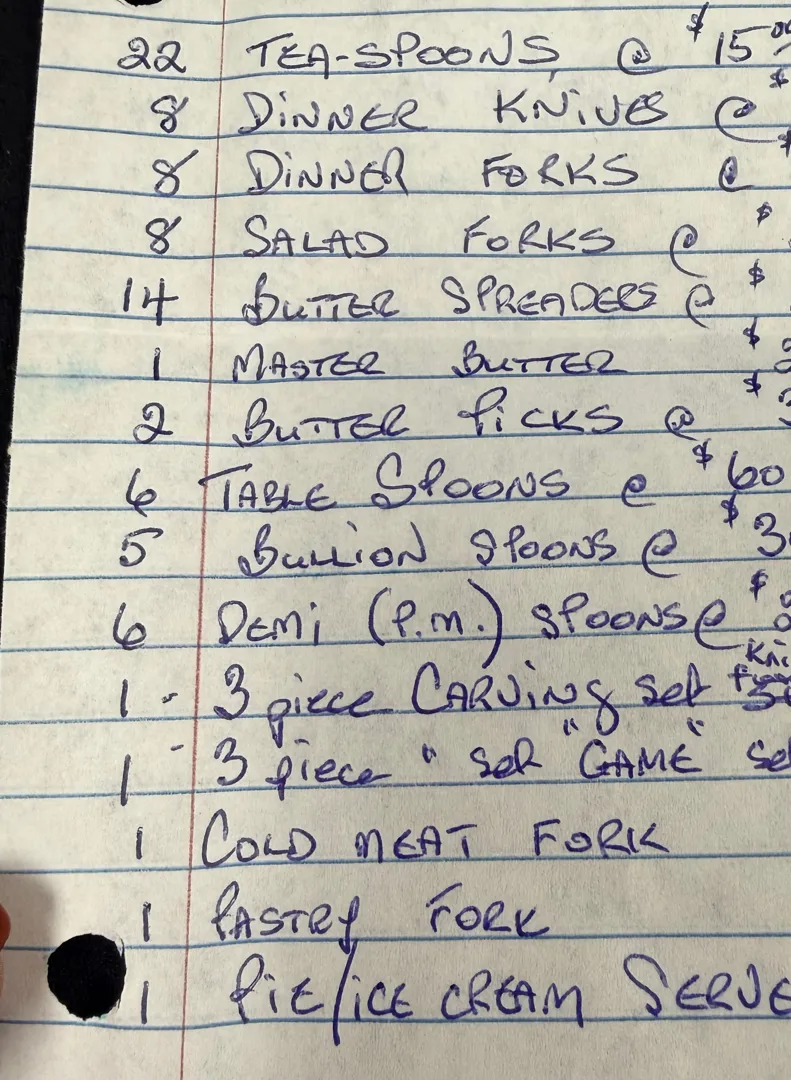 22 TEA-SPOONS @ $15.00
8 DINNER KNIVES @ $
8 DINNER FORKS @ $
8 SALAD FORKS @ $
14 BUTTER SPREADERS @ $
1 MASTER BUTTER $
2 BUTTER PICKS @ $3
6 TABLE SPOONS @ $60
5 BULLION SPOONS @ $3
6 DEMI (P.M.) SPOONS @ $
1 - 3 piece CARVING set
1 - 3 piece " set "GAME"
1 COLD MEAT FORK
1 PASTRY FORK
1 PIE/ICE CREAM SERVE